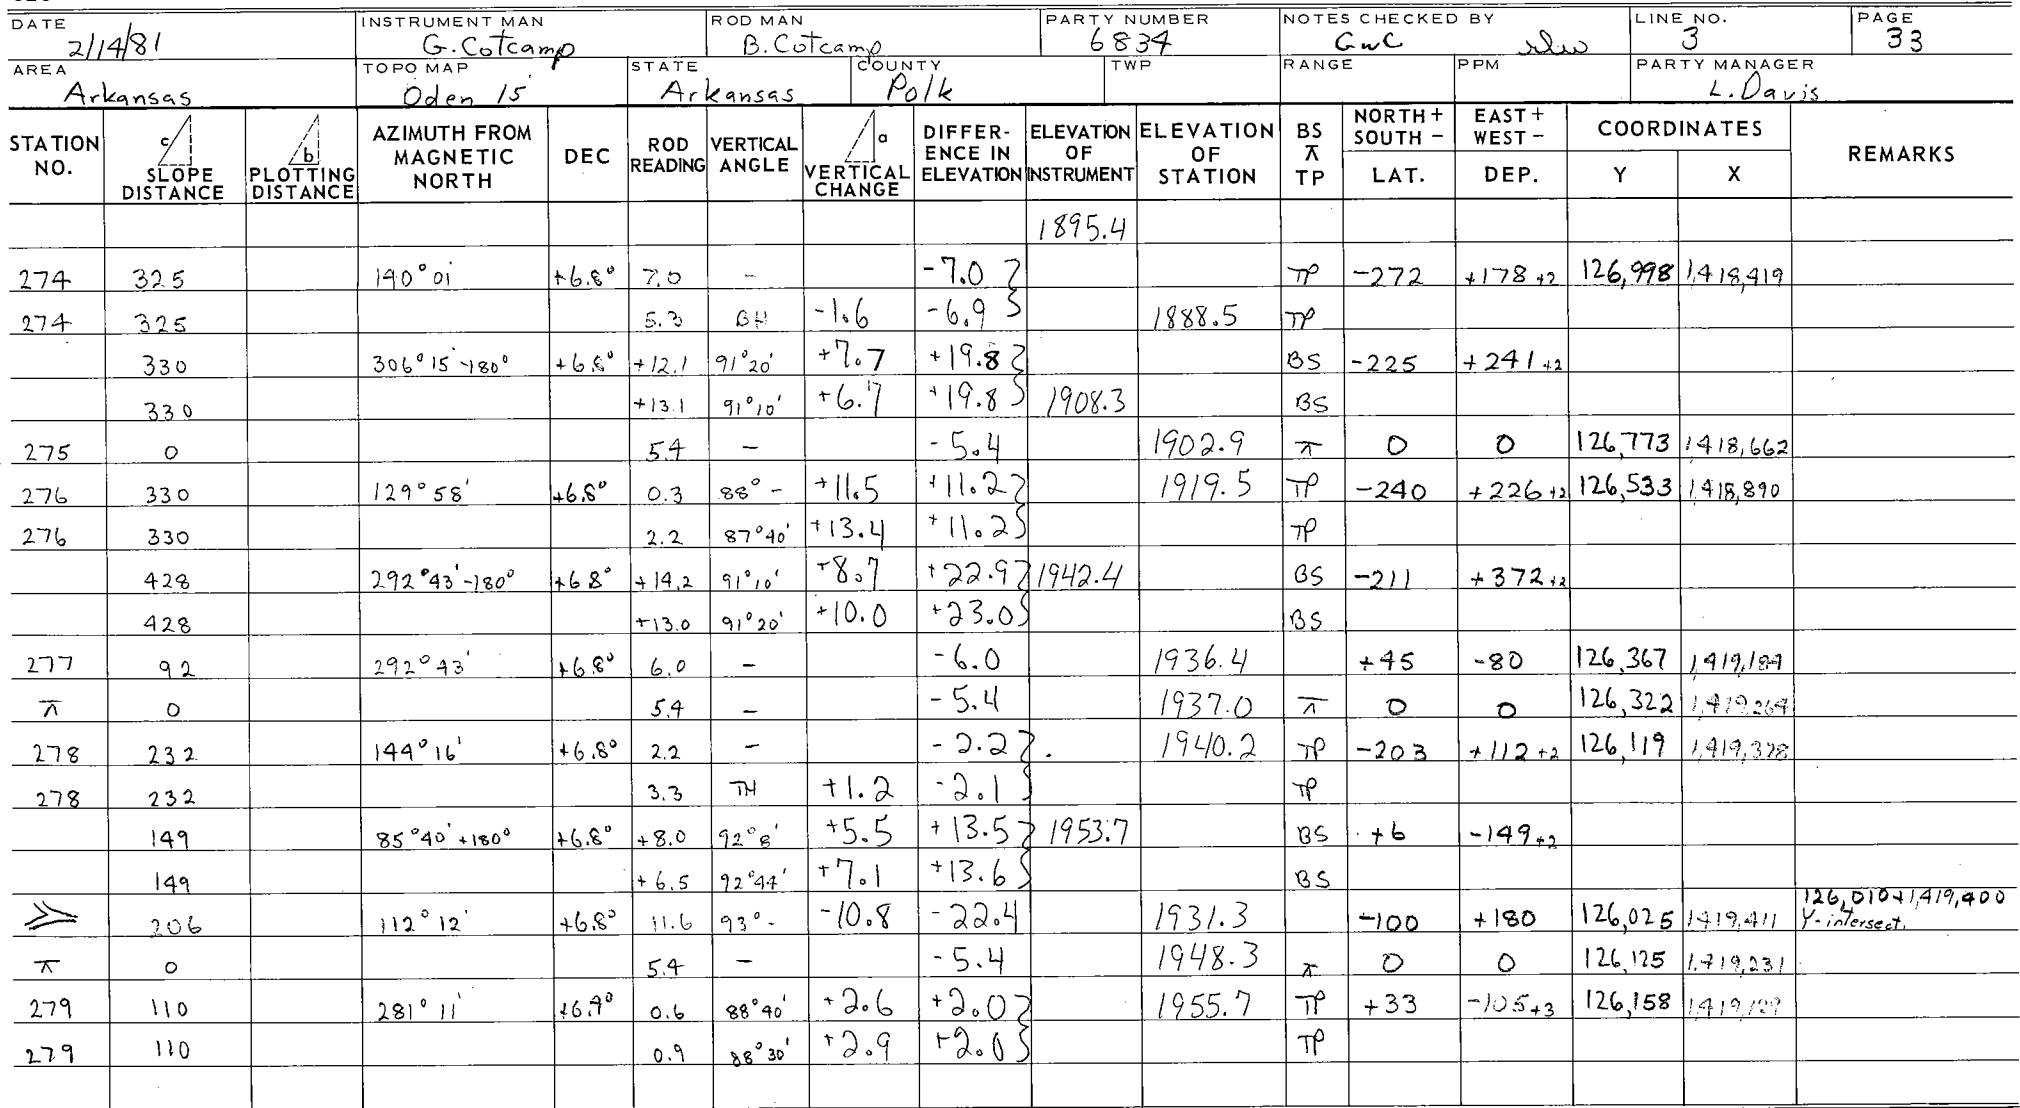 DATE INSTRUMENT MAN ROD MAN PARTY NUMBER NOTES CHECKED BY LINE NO. PAGE
2/14/81 G. Cotcamp B. Cotcamp 6834 GWC rlw 3 33
AREA TOPO MAP STATE COUNTY TWP RANGE PPM PARTY MANAGER
Arkansas Oden 15' Arkansas Polk L. Davis
STATION NO. c SLOPE DISTANCE b PLOTTING DISTANCE AZIMUTH FROM MAGNETIC NORTH DEC ROD READING VERTICAL ANGLE a VERTICAL CHANGE DIFFERENCE IN ELEVATION ELEVATION OF INSTRUMENT ELEVATION OF STATION BS ⊼ TP NORTH + SOUTH - LAT. EAST + WEST - DEP. COORDINATES Y X REMARKS
1895.4
274 325 140°01' +6.8° 7.0 - -7.0 TP -272 +178 +2 126,998 1,418,419
274 325 5.3 BH -1.6 -6.9 1888.5 TP
330 306°15'-180° +6.8° +12.1 91°20' +7.7 +19.8 BS -225 +241 +2
330 +13.1 91°10' +6.7 +19.8 1908.3 BS
275 0 5.4 - -5.4 1902.9 ⊼ 0 0 126,773 1,418,662
276 330 129°58' +6.8° 0.3 88°- +11.5 +11.2 1919.5 TP -240 +226 +2 126,533 1,418,890
276 330 2.2 87°40' +13.4 +11.2 TP
428 292°43'-180° +6.8° +14.2 91°10' +8.7 +22.9 1942.4 BS -211 +372 +2
428 +13.0 91°20' +10.0 +23.0 BS
277 92 292°43' +6.8° 6.0 - -6.0 1936.4 +45 -80 126,367 1,419,184
⊼ 0 5.4 - -5.4 1937.0 ⊼ 0 0 126,322 1,419,264
278 232 144°16' +6.8° 2.2 - -2.2 1940.2 TP -203 +112 +2 126,119 1,419,378
278 232 3.3 TH +1.2 -2.1 TP
149 85°40'+180° +6.8° +8.0 92°8' +5.5 +13.5 1953.7 BS +6 -149 +2
149 +6.5 92°44' +7.1 +13.6 BS
206 112°12' +6.8° 11.6 93°- -10.8 -22.4 1931.3 -100 +180 126,025 1,419,411 126,010+1,419,400 Y-intersect.
⊼ 0 5.4 - -5.4 1948.3 ⊼ 0 0 126,125 1,419,231
279 110 281°11' +6.9° 0.6 88°40' +2.6 +2.0 1955.7 TP +33 -105 +3 126,158 1,419,129
279 110 0.9 88°30' +2.9 +2.0 TP